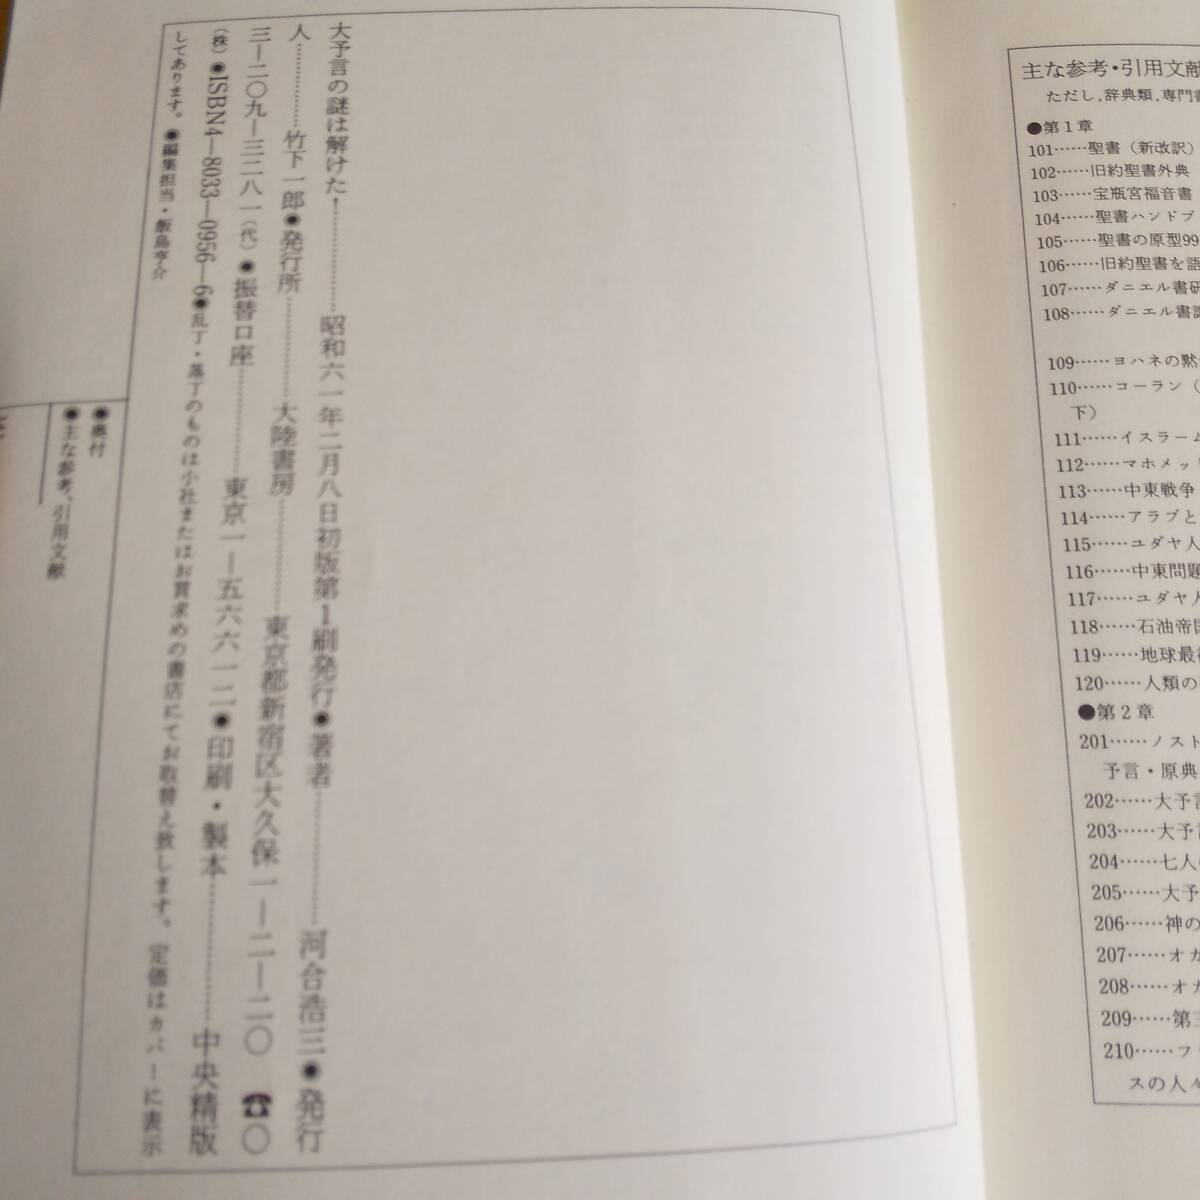 大予言の謎は解けた!…………昭和六一年二月八日初版第1刷発行●著者…………河合浩三●発行
人…………竹下一郎●発行所…………大陸書房…………東京都新宿区大久保一—二—二〇 ☎〇
三—二〇九—三二八一(代)●振替口座…………東京一—五六六一二●印刷・製本…………中央精版
(株)●ISBN4—8033—0956—6●乱丁・落丁のものは小社またはお買求めの書店にてお取替え致します。定価はカバーに表示
してあります。●編集担当・飯島亨介
●奥付
●主な参考、引用文献
主な参考・引用文献
ただし、辞典類、専門書
●第1章
101……聖書(新改訳)
102……旧約聖書外典
103……宝瓶宮福音書
104……聖書ハンドブ
105……聖書の原型99
106……旧約聖書を語
107……ダニエル書研
108……ダニエル書講
109……ヨハネの黙
110……コーラン(
下)
111……イスラーム
112……マホメット
113……中東戦争
114……アラブと
115……ユダヤ人
116……中東問題
117……ユダヤ人
118……石油帝国
119……地球最後
120……人類の
●第2章
201……ノスト
予言・原典
202……大予言
203……大予言
204……七人の
205……大予
206……神の
207……オカ
208……オカ
209……第三
210……フ
スの人々